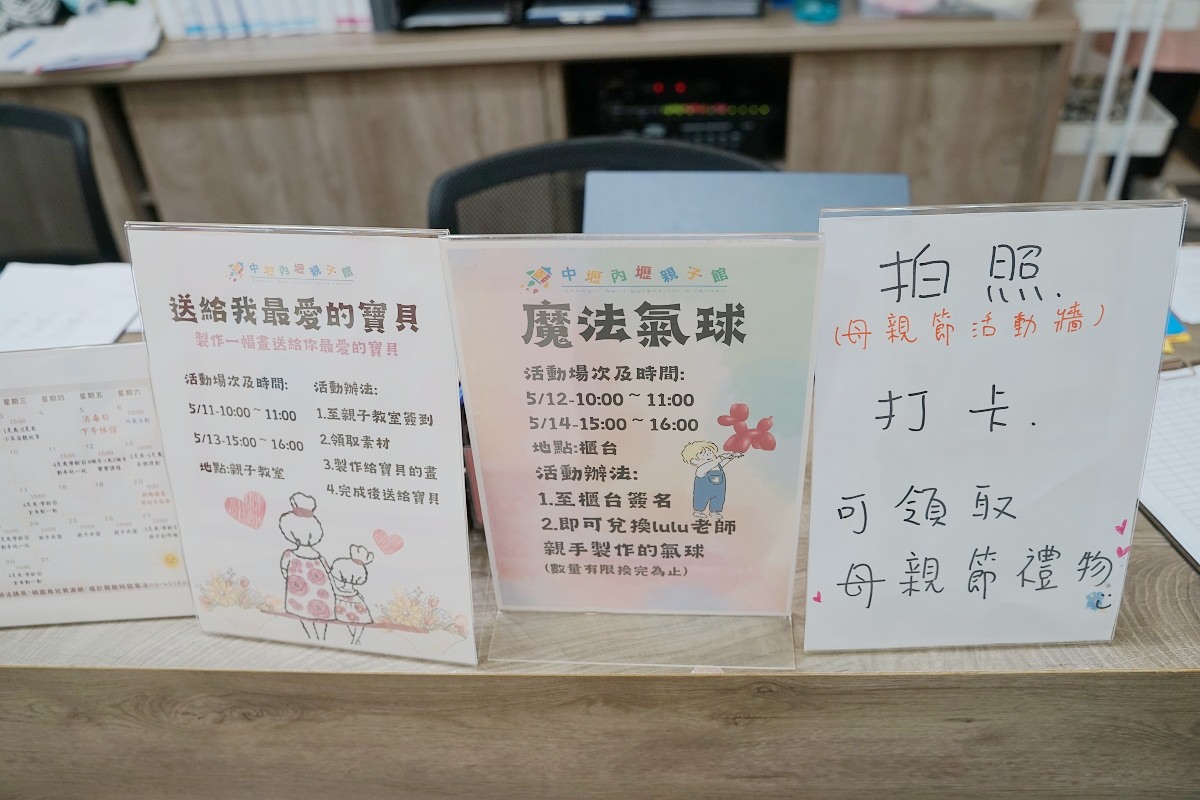 中壢內壢親子館
送給我最愛的寶貝
製作一幅畫送給你最愛的寶貝
活動場次及時間:
5/11-10:00~11:00
5/13-15:00~16:00
地點:親子教室
活動辦法:
1.至親子教室簽到
2.領取素材
3.製作給寶貝的畫
4.完成後送給寶貝
中壢內壢親子館
魔法氣球
活動場次及時間:
5/12-10:00~11:00
5/14-15:00~16:00
地點:櫃台
活動辦法:
1.至櫃台簽名
2.即可兌換lulu老師
親手製作的氣球
(數量有限換完為止)
拍照.
(母親節活動牆)
打卡.
可領取
母親節禮物
星期三 星期四 星期五 星期六